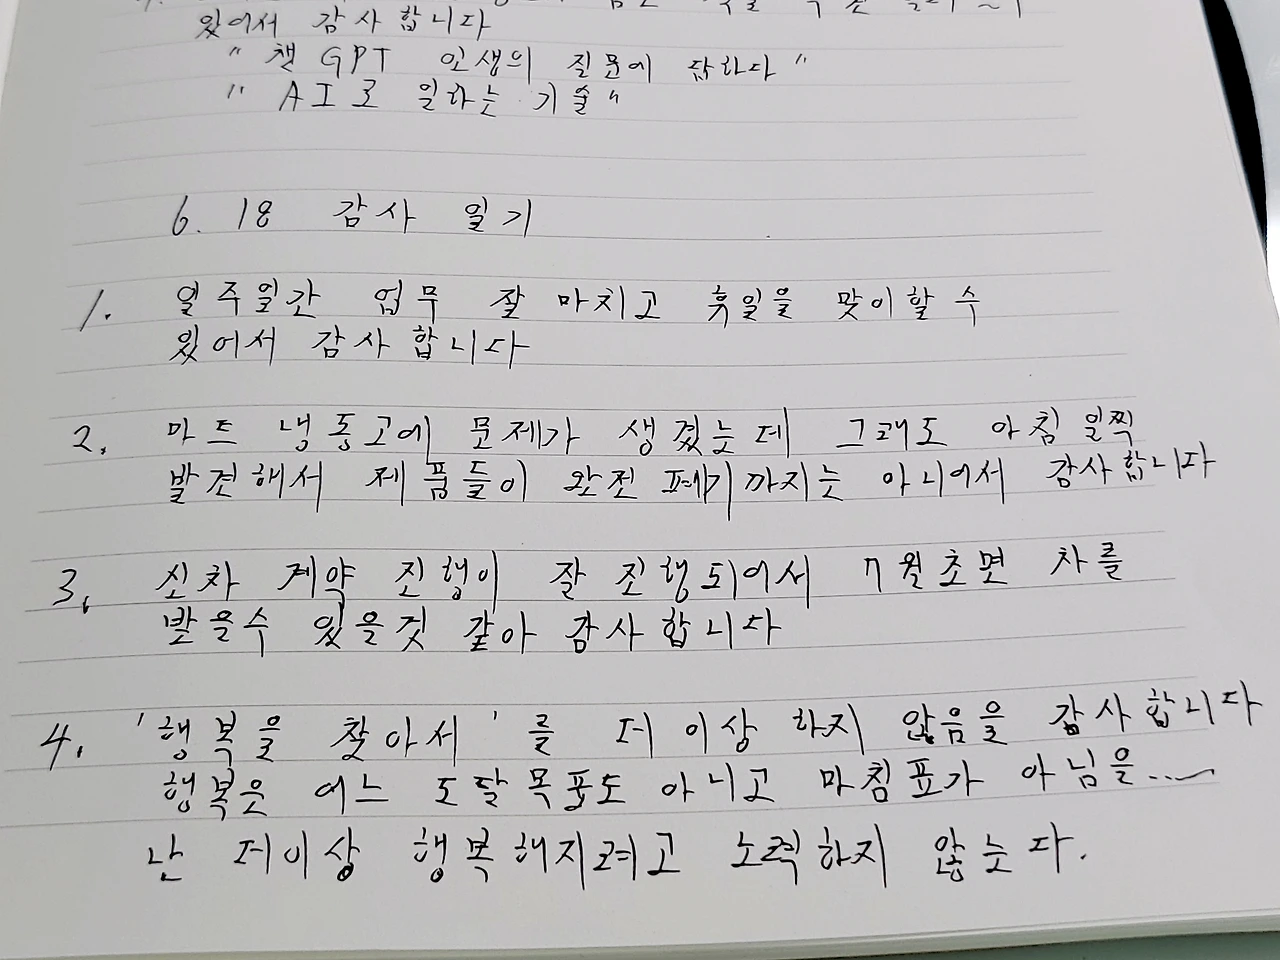 있어서 감사합니다
" 챗 GPT 인생의 질문에 답하다 "
" AI로 일하는 기술 "
6. 18 감사 일기
1. 일주일간 업무 잘 마치고 휴일을 맞이할 수
있어서 감사합니다
2. 마트 냉동고에 문제가 생겼는데 그래도 아침 일찍
발견해서 제품들이 완전 폐기까지는 아니어서 감사합니다
3. 신차 계약 진행이 잘 진행되어서 7월초면 차를
받을수 있을것 같아 감사합니다
4. '행복을 찾아서'를 더 이상 하지 않음을 감사합니다
행복은 어느 도달목표도 아니고 마침표가 아님을...~
난 더이상 행복해지려고 노력하지 않는다.